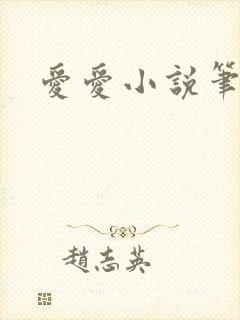 愛愛小說筆
趙志英